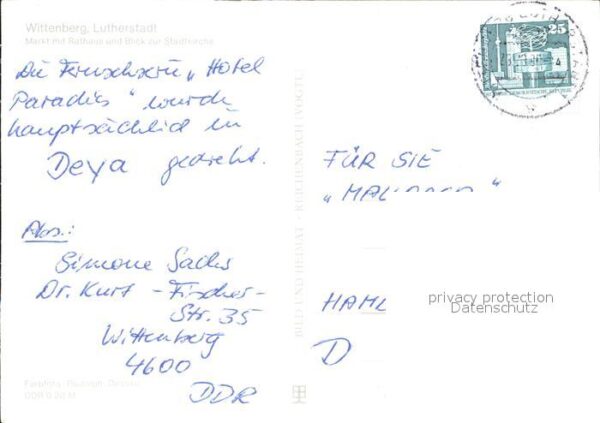 Wittenberg, Lutherstadt
Markt mit Rathaus und Blick zur Stadtkirche
Die Fernsehserie „Hotel
Paradies" wurde
hauptsächlich in
Deya gedreht.
Abs.:
Simone Sachs
Dr. Kurt-Fischer-
Str. 35
Wittenberg
4600
DDR
Farbfoto: Dessau
BILD UND HEIMAT · REICHENBACH (VOGTL
25
DEMOKRATISCHE REPUBLIK
FÜR SIE
„MALLORCA"
HAML
D
privacy protection
Datenschutz